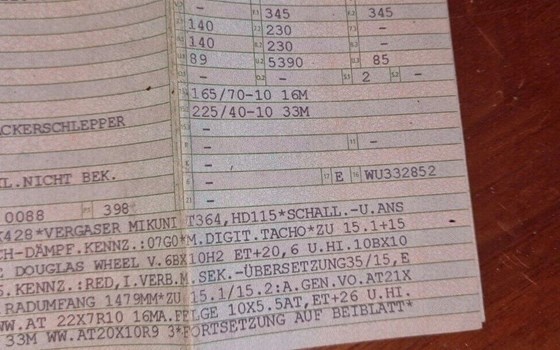 - 345 345
140 230 -
140 230 -
89 5390 85
- - 2 -
165/70-10 16M
225/40-10 33M
ACKERSCHLEPPER -
- -
L.NICHT BEK. - E WU332852
0088 398 -
X428*VERGASER MIKUNI T364,HD115*SCHALL.-U.ANS
CH-DÄMPF.KENNZ.:07G0*M.DIGIT.TACHO*ZU 15.1+15
E DOUGLAS WHEEL V.6BX10H2 ET+20,6 U.HI.10BX10
S.KENNZ.:RED,I.VERB.M.SEK.-ÜBERSETZUNG35/15,E
RADUMFANG 1479MM*ZU 15.1/15.2:A.GEN.VO.AT21X
WW.AT 22X7R10 16MA.FELGE 10X5.5AT,ET+26 U.HI.
33M WW.AT20X10R9 3*FORTSETZUNG AUF BEIBLATT*